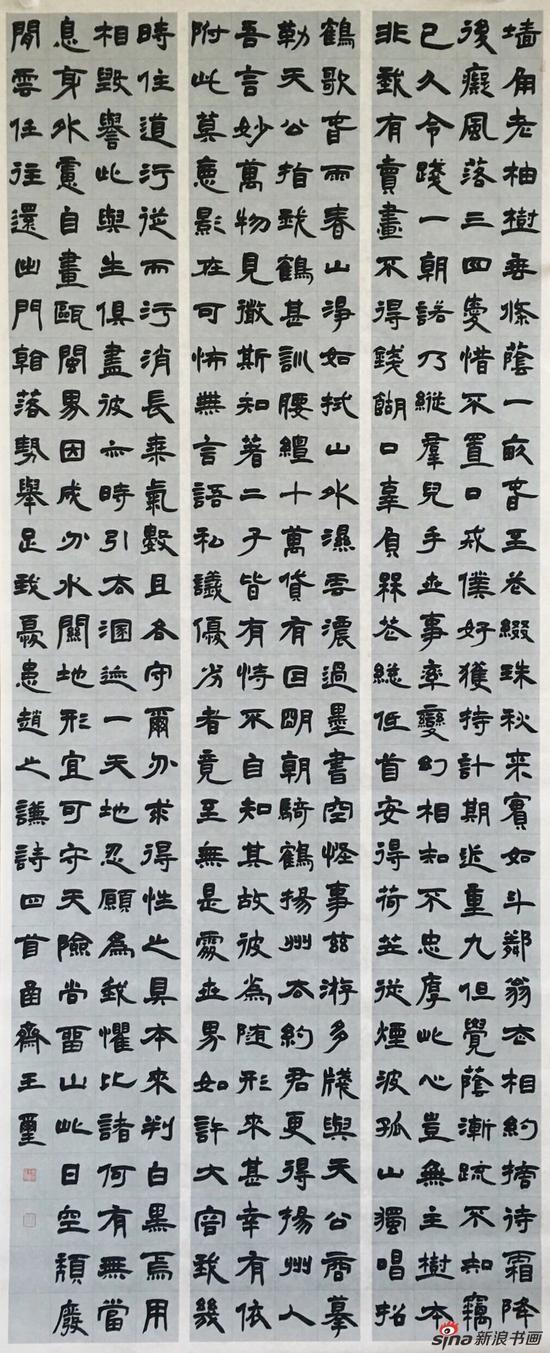 墙角老柚樹垂條蔭一畝春至花綴珠秋来實如斗鄰翁去相約摘待霜降
後癡風落三四愛惜不置口戒僕好獲持計期近重九但覺蔭漸疏不知竊
已久令踐一朝諾乃縱羣兒手世事率變幻相知不忠厚此心豈無主樹本
非我有賣畫不得錢餬口辜負槑花總低首安得荷笠從煙波孤山獨唱招
鶴歌春雨春山淨如拭山水濕雲濃過墨書空怪事茲游多牋與天公商摹
勒天公指我鶴甚訓腰纏十萬貲有因明朝騎鶴揚州去約君更得揚州人
吾言妙萬物見微斯知著二子皆有恃不自知其故彼為随形來甚幸有依
附此莫憙影在可怖無言語私議優劣者竟至無是處世界如許大容我幾
時住道污從而污消長乘氣數且各守爾分求得性之具本來判白黑焉用
相毀譽此與生俱盡彼亦時引去溷迹一天地忍願為我懼比諸何有無當
息身外慮自畫甌閩界因成分水關地形宜可守天險尚留山此日空頹廢
閒雲任往還出門落勢舉足我憂患趙之謙詩四首甬齋王璽
sina 新浪书画